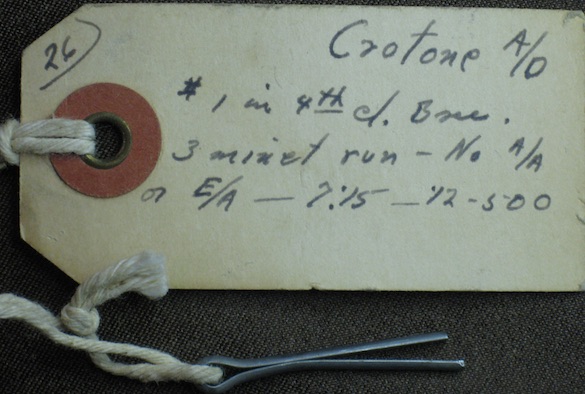 26
Crotone A/D
# 1 in 4th cl. Bne.
3 minet run - No A/A
or E/A — 7:15 — 12-500